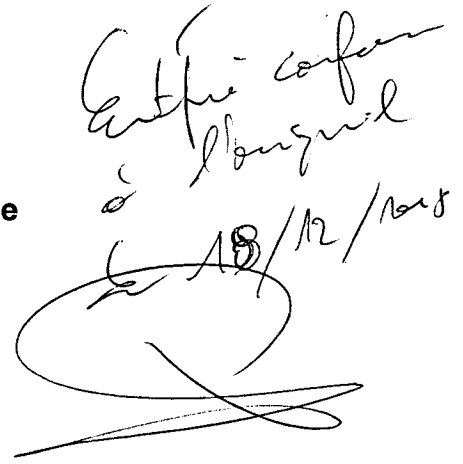 Certifié conforme
à l'original
e
le 18/12/2018